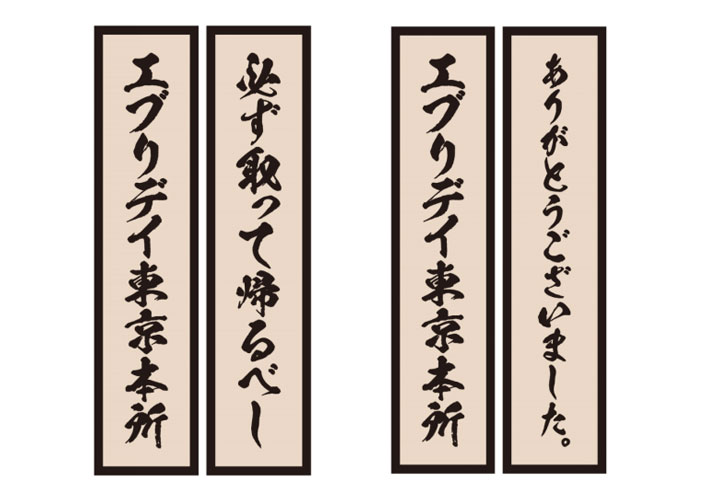 必ず取って帰るべし
エブリデイ東京本所
ありがとうございました。
エブリデイ東京本所